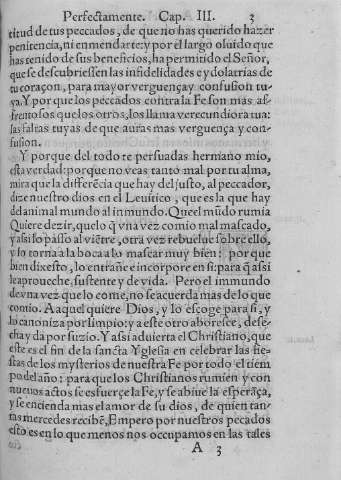 Perfectamente. Cap. III. 3
titud de tus peccados, de que no has querido hazer
penitencia, ni enmendarte: y por el largo oluido que
has tenido de sus beneficios, ha permitido el Señor,
que se descubriessen las infidelidades e ydolatrias de
tu coraçon, para mayor verguença y confusion tu-
ya. Y por que los peccados contra la Fe son mas af-
frentosos que los otros, los llama verecundiora tua:
las faltas tuyas de que auras mas verguença y con-
fusion.
Y porque del todo te persuadas hermano mio,
esta verdad: porque no veas tanto mal por tu alma,
mira que la differẽcia que hay del justo, al peccador,
dize nuestro dios en el Leuitico, que es la que hay
del animal mundo al inmundo. Que el mũdo rumia
Quiere dezir, quelo q̃ vna vez comio mal mascado,
y assi lo passo al viẽtre, otra vez rebuelue sobre ello,
y lo torna a la boca a lo mascar muy bien: porque
bien dixesto, lo entrañe e incorpore en si: para q̃ assi
le aprouechẽ, sustente y de vida. Pero el immundo
de vna vez que lo come, no se acuerda mas de lo que
comio. A aquel quiere Dios, y lo escoge para si, y
lo canoniza por limpio: y a este otro aborresce, dese-
cha y da por suzio. Y assi aduierta el Christiano, que
este es el fin de la sancta Yglesia en celebrar las fie-
stas de los mysterios de nuestra Fe por todo el tiem
po del año: para que los Christianos rumien y con
nueuos actos se esfuerçe la Fe, y se abiue la esperãça,
y se encienda mas el amor de su dios, de quien tan-
tas mercedes recibẽ, Empero por nuestros pecados
esto es en lo que menos nos occupamos en las tales
A 3